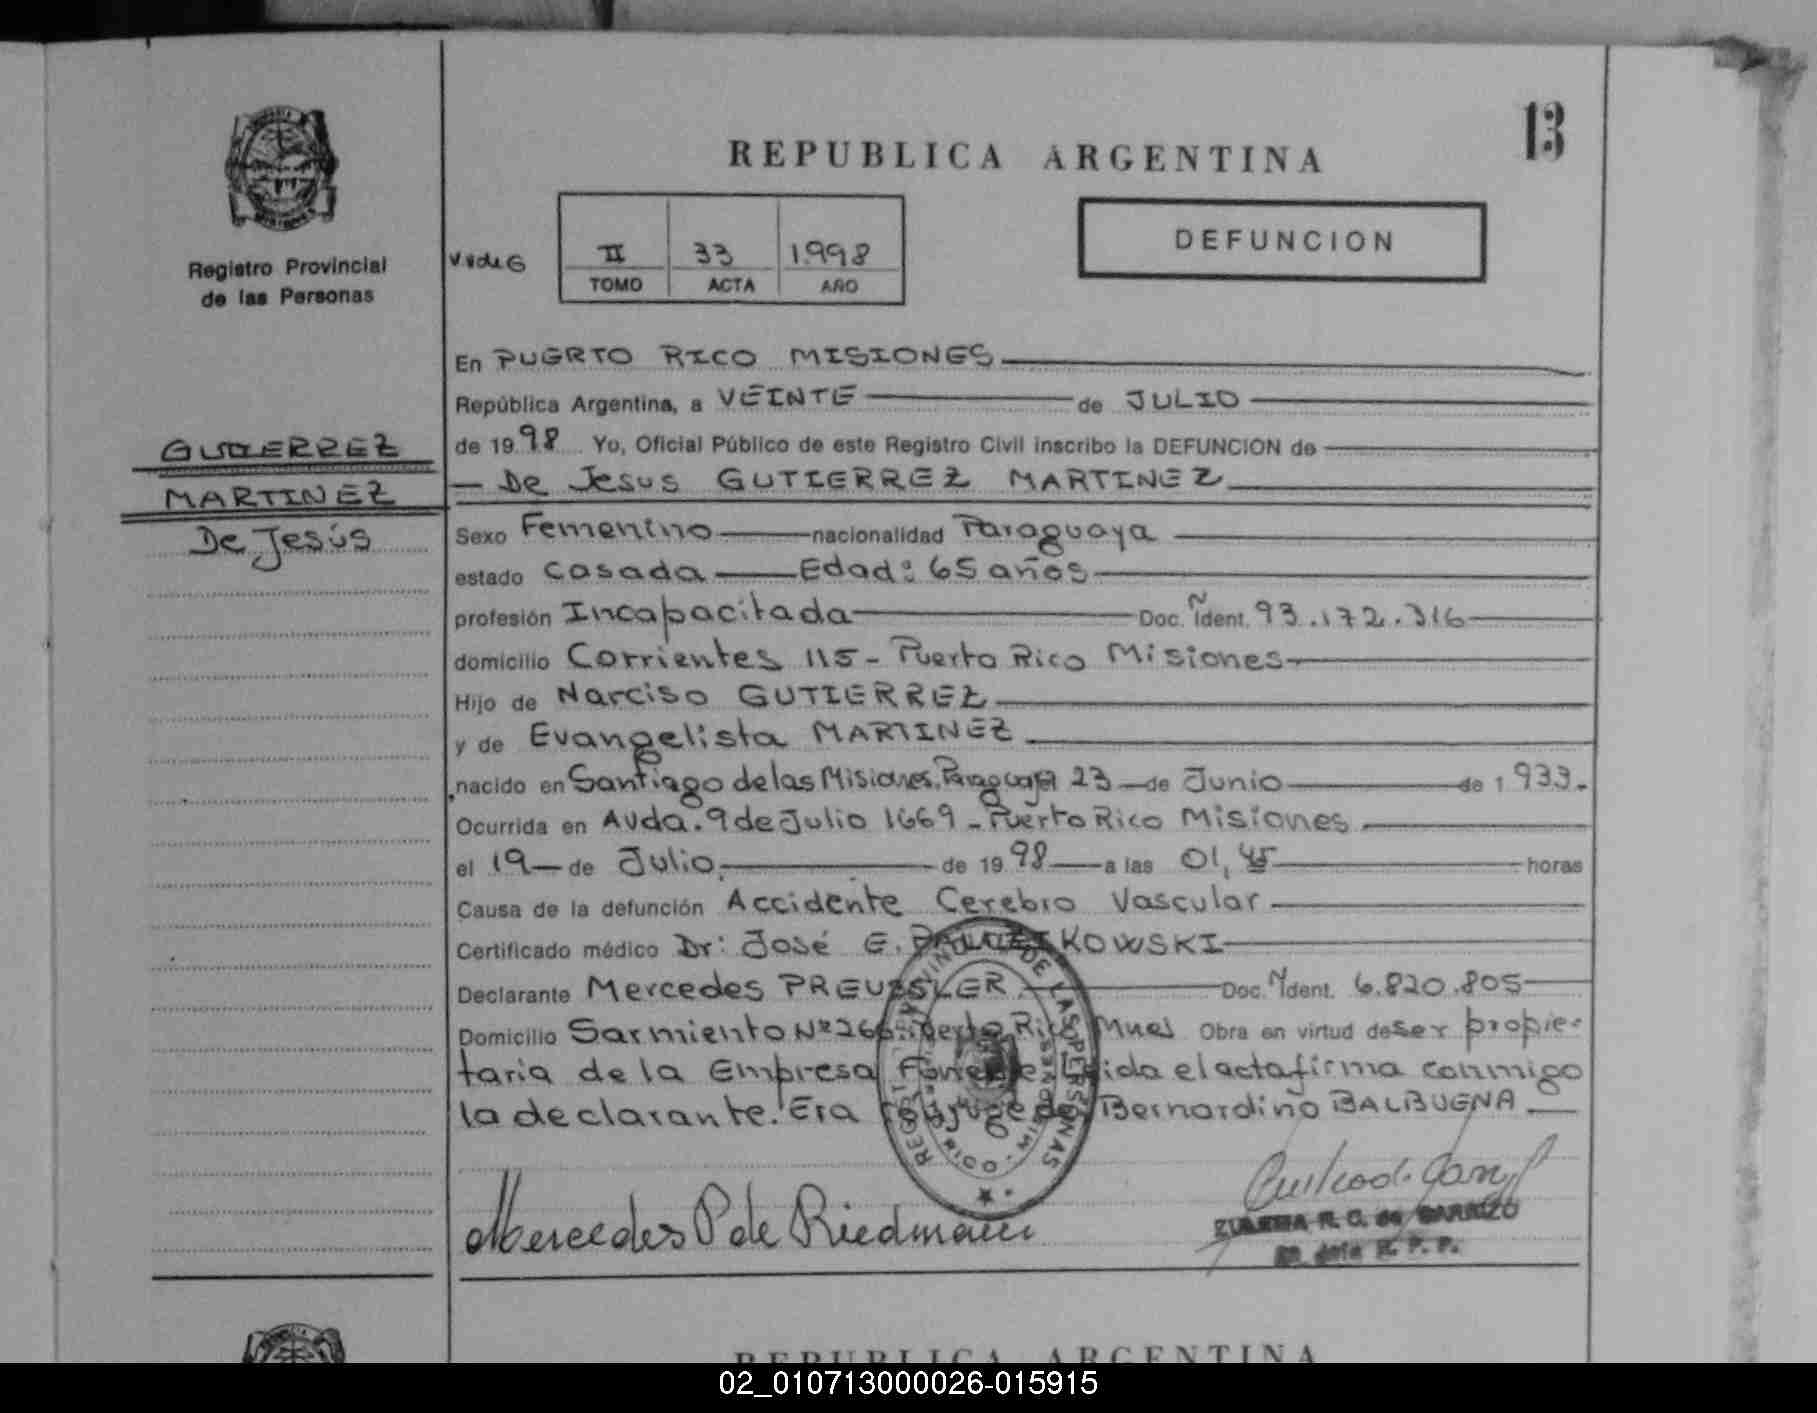 13
REPUBLICA ARGENTINA
Registro Provincial
de las Personas
II 33 1.998
TOMO ACTA AÑO
DEFUNCION
GUTIERREZ
MARTINEZ
De Jesús
En PUERTO RICO MISIONES
República Argentina, a VEINTE de JULIO
de 1998 Yo, Oficial Público de este Registro Civil inscribo la DEFUNCION de
De Jesus GUTIERREZ MARTINEZ
Sexo Femenino nacionalidad Paraguaya
estado casada Edad: 65 años
profesión Incapacitada Doc. Ñ Ident. 93.172.316
domicilio Corrientes 115 - Puerto Rico Misiones
Hijo de Narciso GUTIERREZ
y de Evangelista MARTINEZ
nacido en Santiago de las Misiones, Paraguay el 23 de Junio de 1933.
Ocurrida en Avda. 9 de Julio 1669 - Puerto Rico Misiones
el 19 de Julio de 1998 a las 01,45 horas
Causa de la defunción Accidente Cerebro Vascular
Certificado médico Dr: José E.
Declarante Mercedes PREUSSLER Doc. Ident. 6.820.805
Domicilio Sarmiento Nº 266 Puerto Rico Mnes Obra en virtud de ser propie-
taria de la Empresa Leida el acta firma conmigo
la declarante. Era conyuge de Bernardino BALBUENA
REGISTRO PROVINCIAL DE LAS PERSONAS
MISIONES
Mercedes P de Riedmann
ZULEMA R. G. de CARRIZO
R. P. P.
REPUBLICA ARGENTINA
02_010713000026-015915